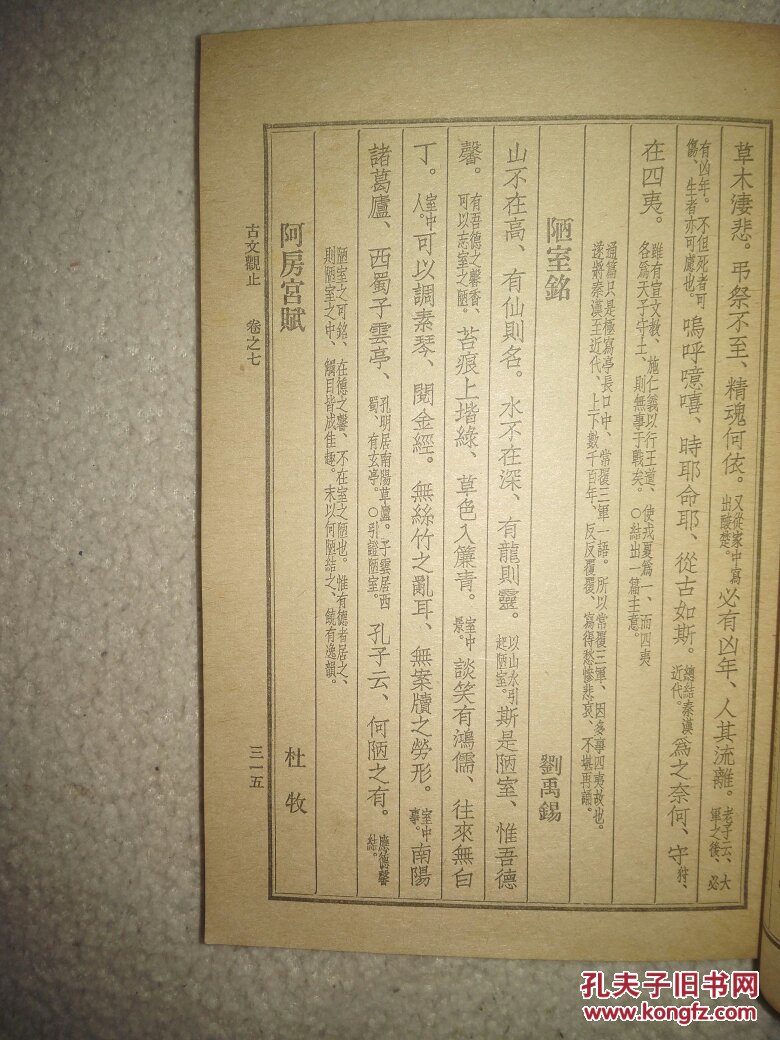 草木淒悲。弔祭不至、精魂何依。又從家中寫出酸楚。必有凶年、人其流離。老子云、大軍之後、必
有凶年。不但死者可傷、生者亦可慮也。嗚呼噫嘻、時耶命耶、從古如斯。總結秦漢近代。爲之奈何、守狩、
在四夷。雖有宣文教、施仁義以行王道、使戎夏爲一、而四夷各爲天子守土、則無事于戰矣。○結出一篇主意。
通篇只是極寫亭長口中、常覆三軍一語。所以常覆三軍、因多事四夷故也。遂將秦漢至近代、上下數千百年、反反覆覆、寫得愁慘悲哀、不堪再誦。
陋室銘 劉禹錫
山不在高、有仙則名。水不在深、有龍則靈。以山水引起陋室。斯是陋室、惟吾德
馨。有吾德之馨香、可以忘室之陋。苔痕上堦綠、草色入簾青。室中景。談笑有鴻儒、往來無白
丁。室中人。可以調素琴、閱金經。無絲竹之亂耳、無案牘之勞形。室中事。南陽
諸葛廬、西蜀子雲亭、孔明居南陽草廬。子雲居西蜀、有玄亭。○引證陋室。孔子云、何陋之有。應德馨結。
陋室之可銘、在德之馨、不在室之陋也。惟有德者居之、則陋室之中、觸目皆成佳趣。末以何陋結之、饒有逸韻。
阿房宮賦 杜牧
古文觀止 卷之七 三一五
孔夫子旧书网
www.kongfz.com